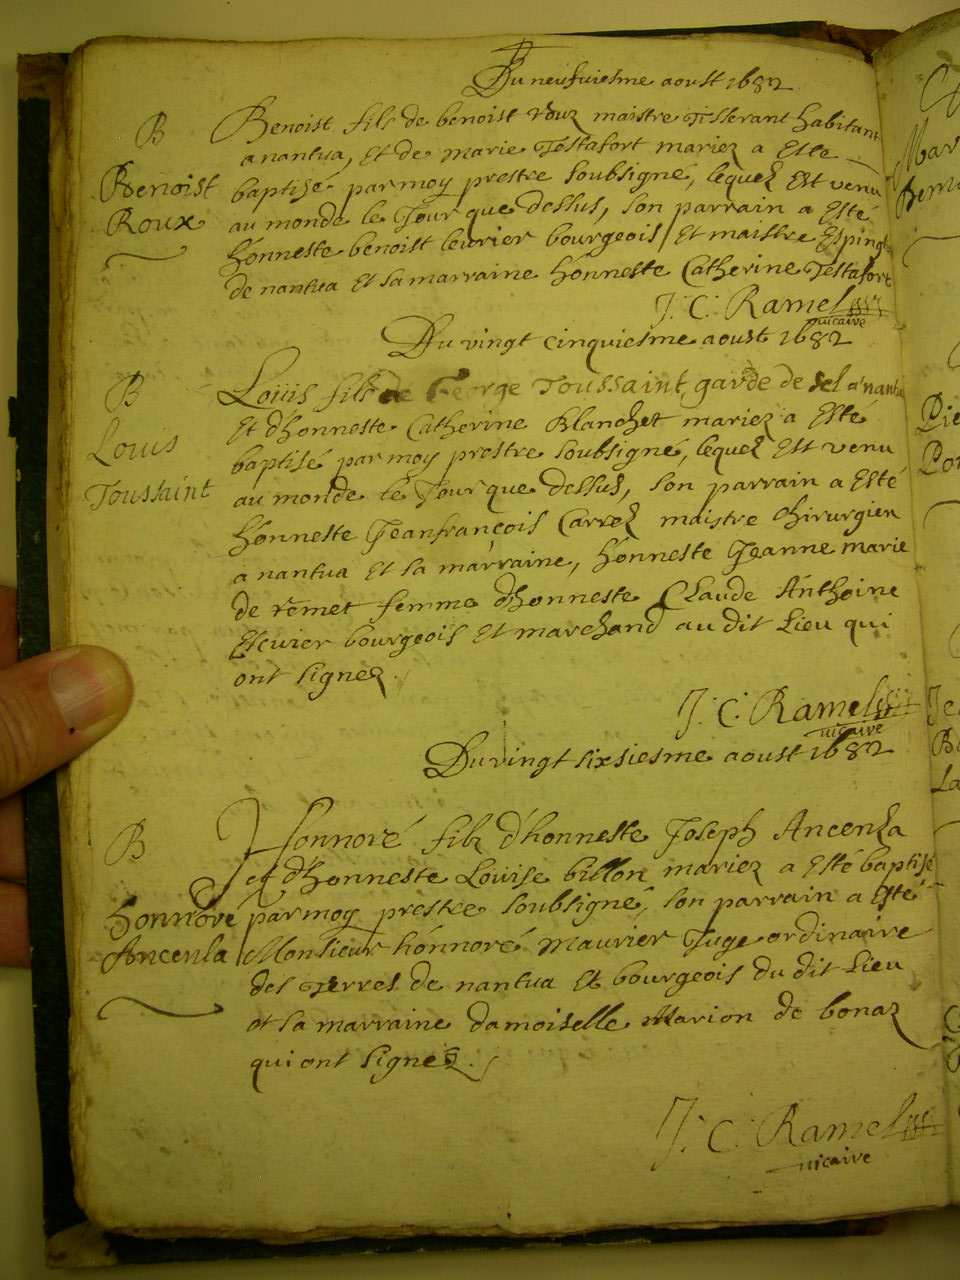 Du neufviesme aoust 1682
B
Benoist
Roux
Benoist fils de benoist roux maistre Tisserant habitant
a nantua, Et de marie Testafort mariez a Esté
baptisé par moy prestre soubsigné, lequel Est venu
au monde le Jour que dessus, son parrain a Esté
hónneste benoist leurier bourgeois Et maistre
de nantua Et sa marraine hónneste Catherine Testafort
J. C. Ramel
vicaire
Du vingt cinquiesme aoust 1682
B
Louis
Toussaint
Loüis fils de George Toussaint, garde de sel a nantua
Et d'honneste Catherine Blanchet mariez a Esté
baptisé par moy prestre soubsigné, lequel Est venu
au monde le Jour que dessus, son parrain a Esté
hónneste Jeanfrançois Carrel maistre chirurgien
a nantua Et sa marraine, hónneste Jeanne marie
de femme d'honneste Claude Anthoine
bourgeois Et marchand au dit Lieu qui
ont signez.
J. C. Ramel
vicaire
Du vingt sixsiesme aoust 1682
B
honnoré
Ancenla
Honnoré filz d'honneste Joseph Ancenla
et d'honneste Loüise billon mariez a esté baptisé
par moy prestre soubsigné, son parrain a Esté
Monsieur hónnoré maurier Juge ordinaire
des Terres de nantua Et bourgeois du dit Lieu
et sa marraine damoiselle Marion de bonaz
qui ont signez.
J. C. Ramel
vicaire